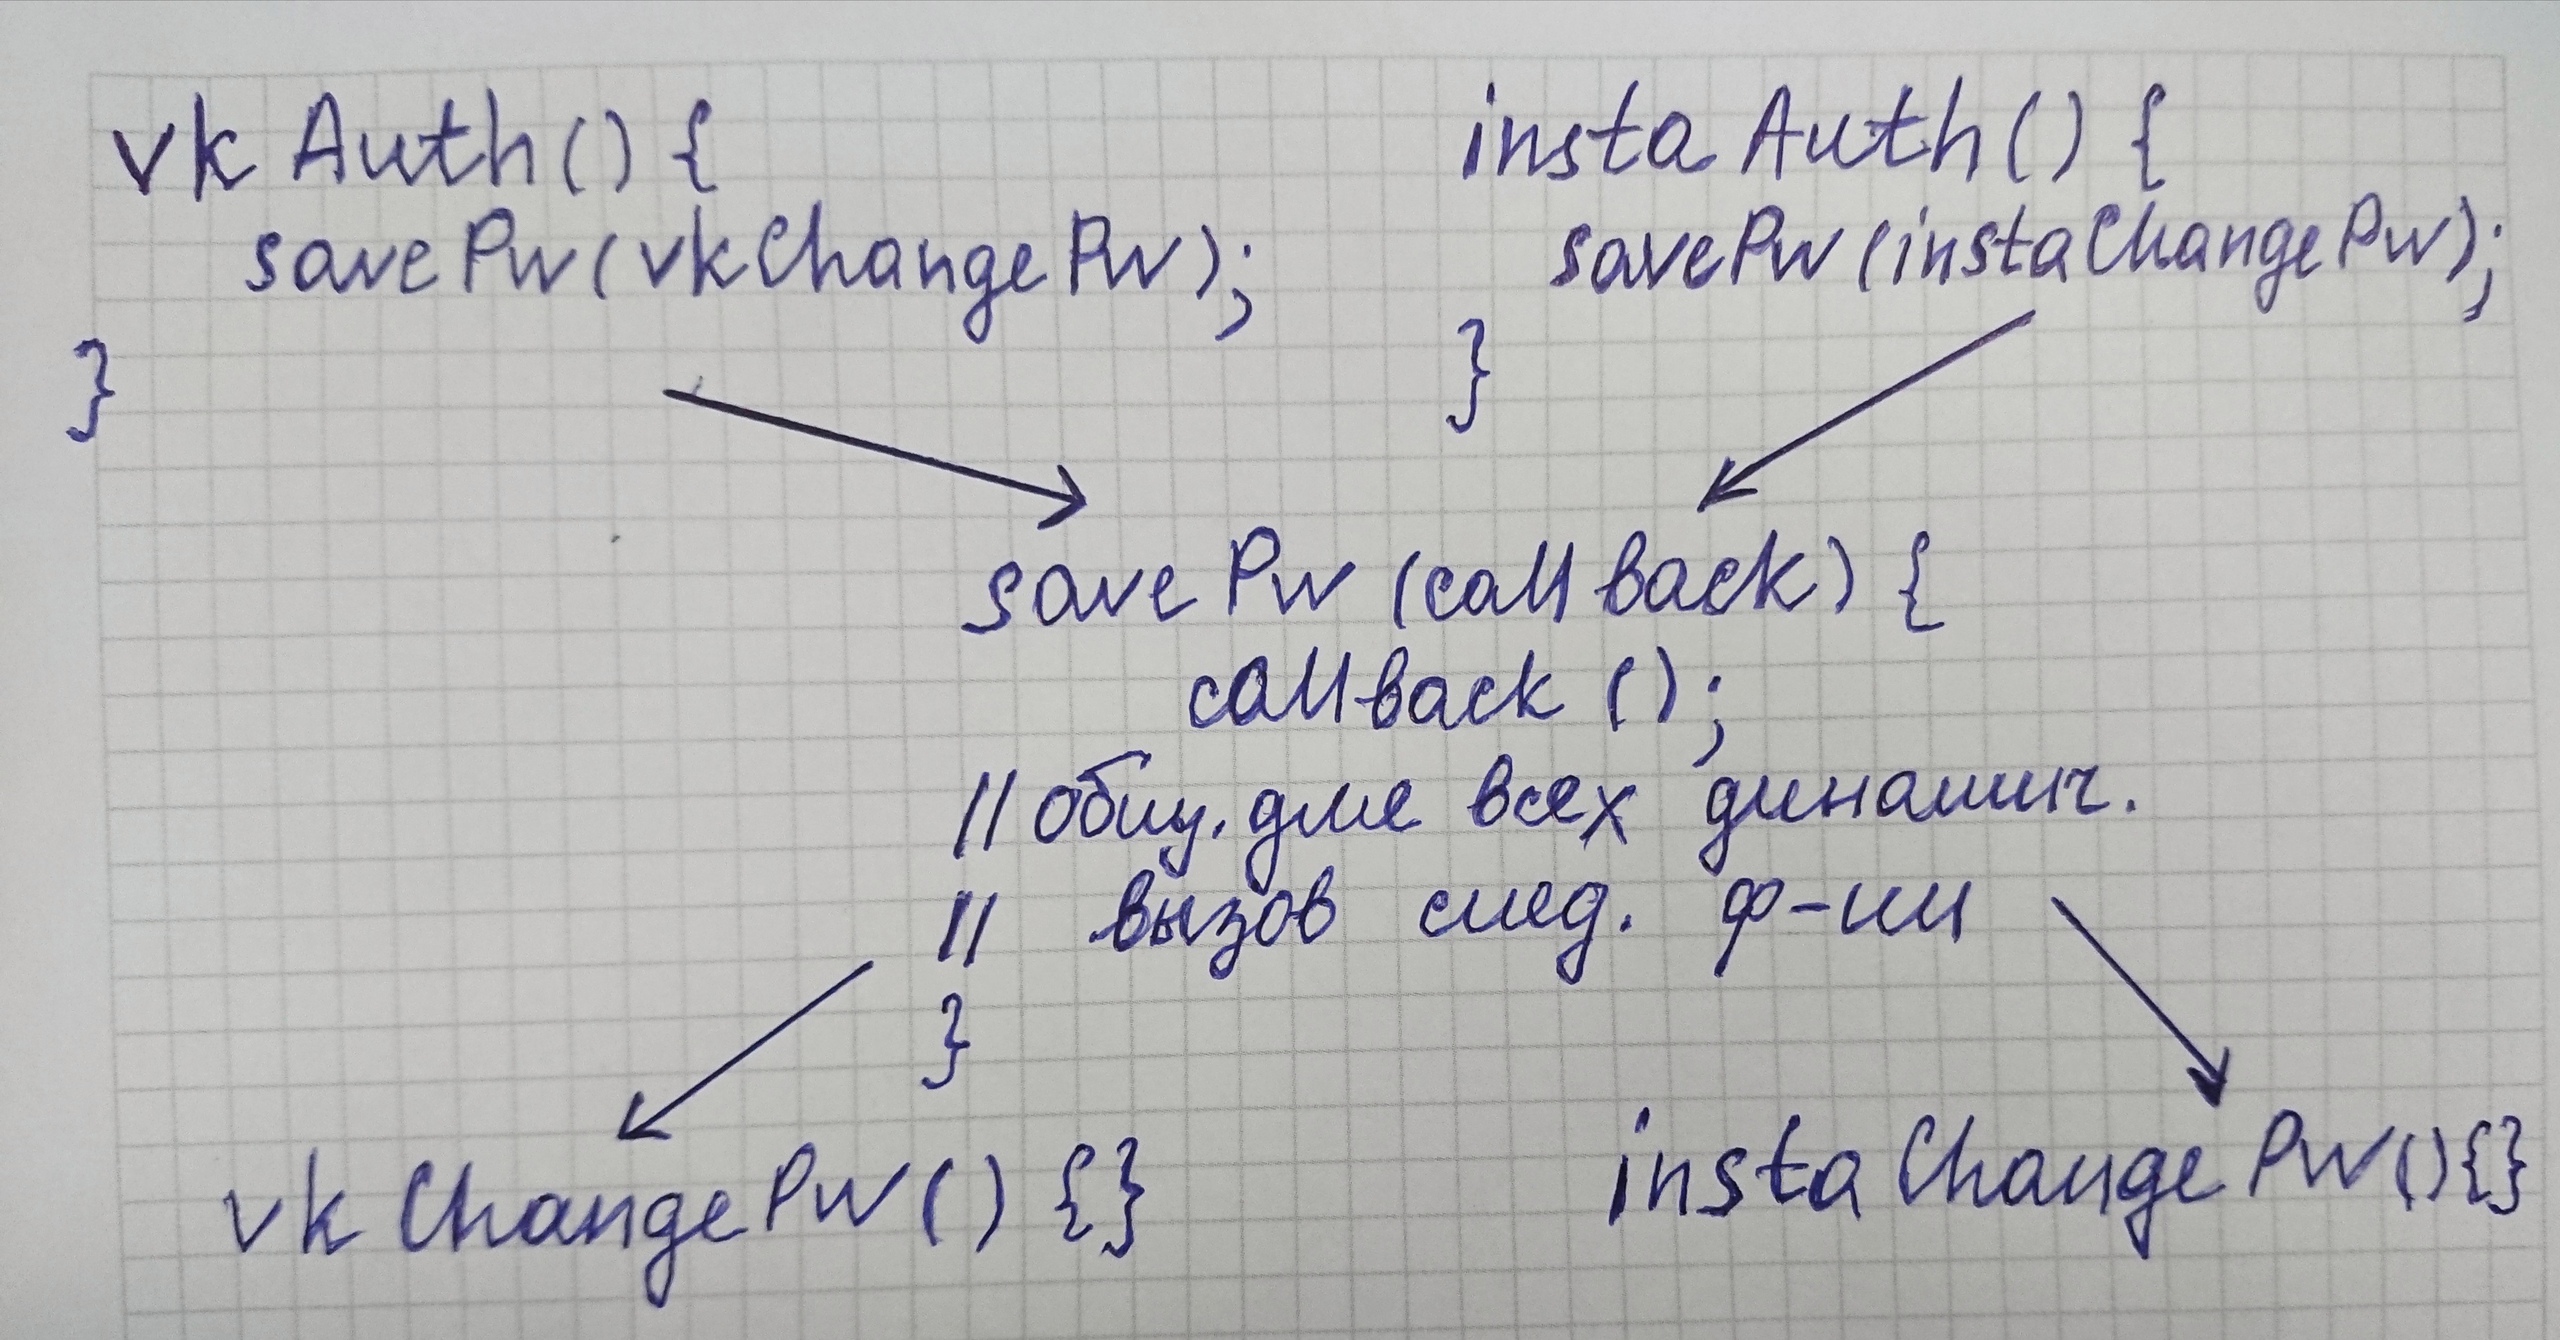 vkAuth() {
savePw(vkChangePw);
}
instaAuth() {
savePw(instaChangePw);
}
savePw (callback) {
callback ();
// общ. для всех динамич.
// вызов след. ф-ии
}
vkChangePw() {}
instaChangePw(){}